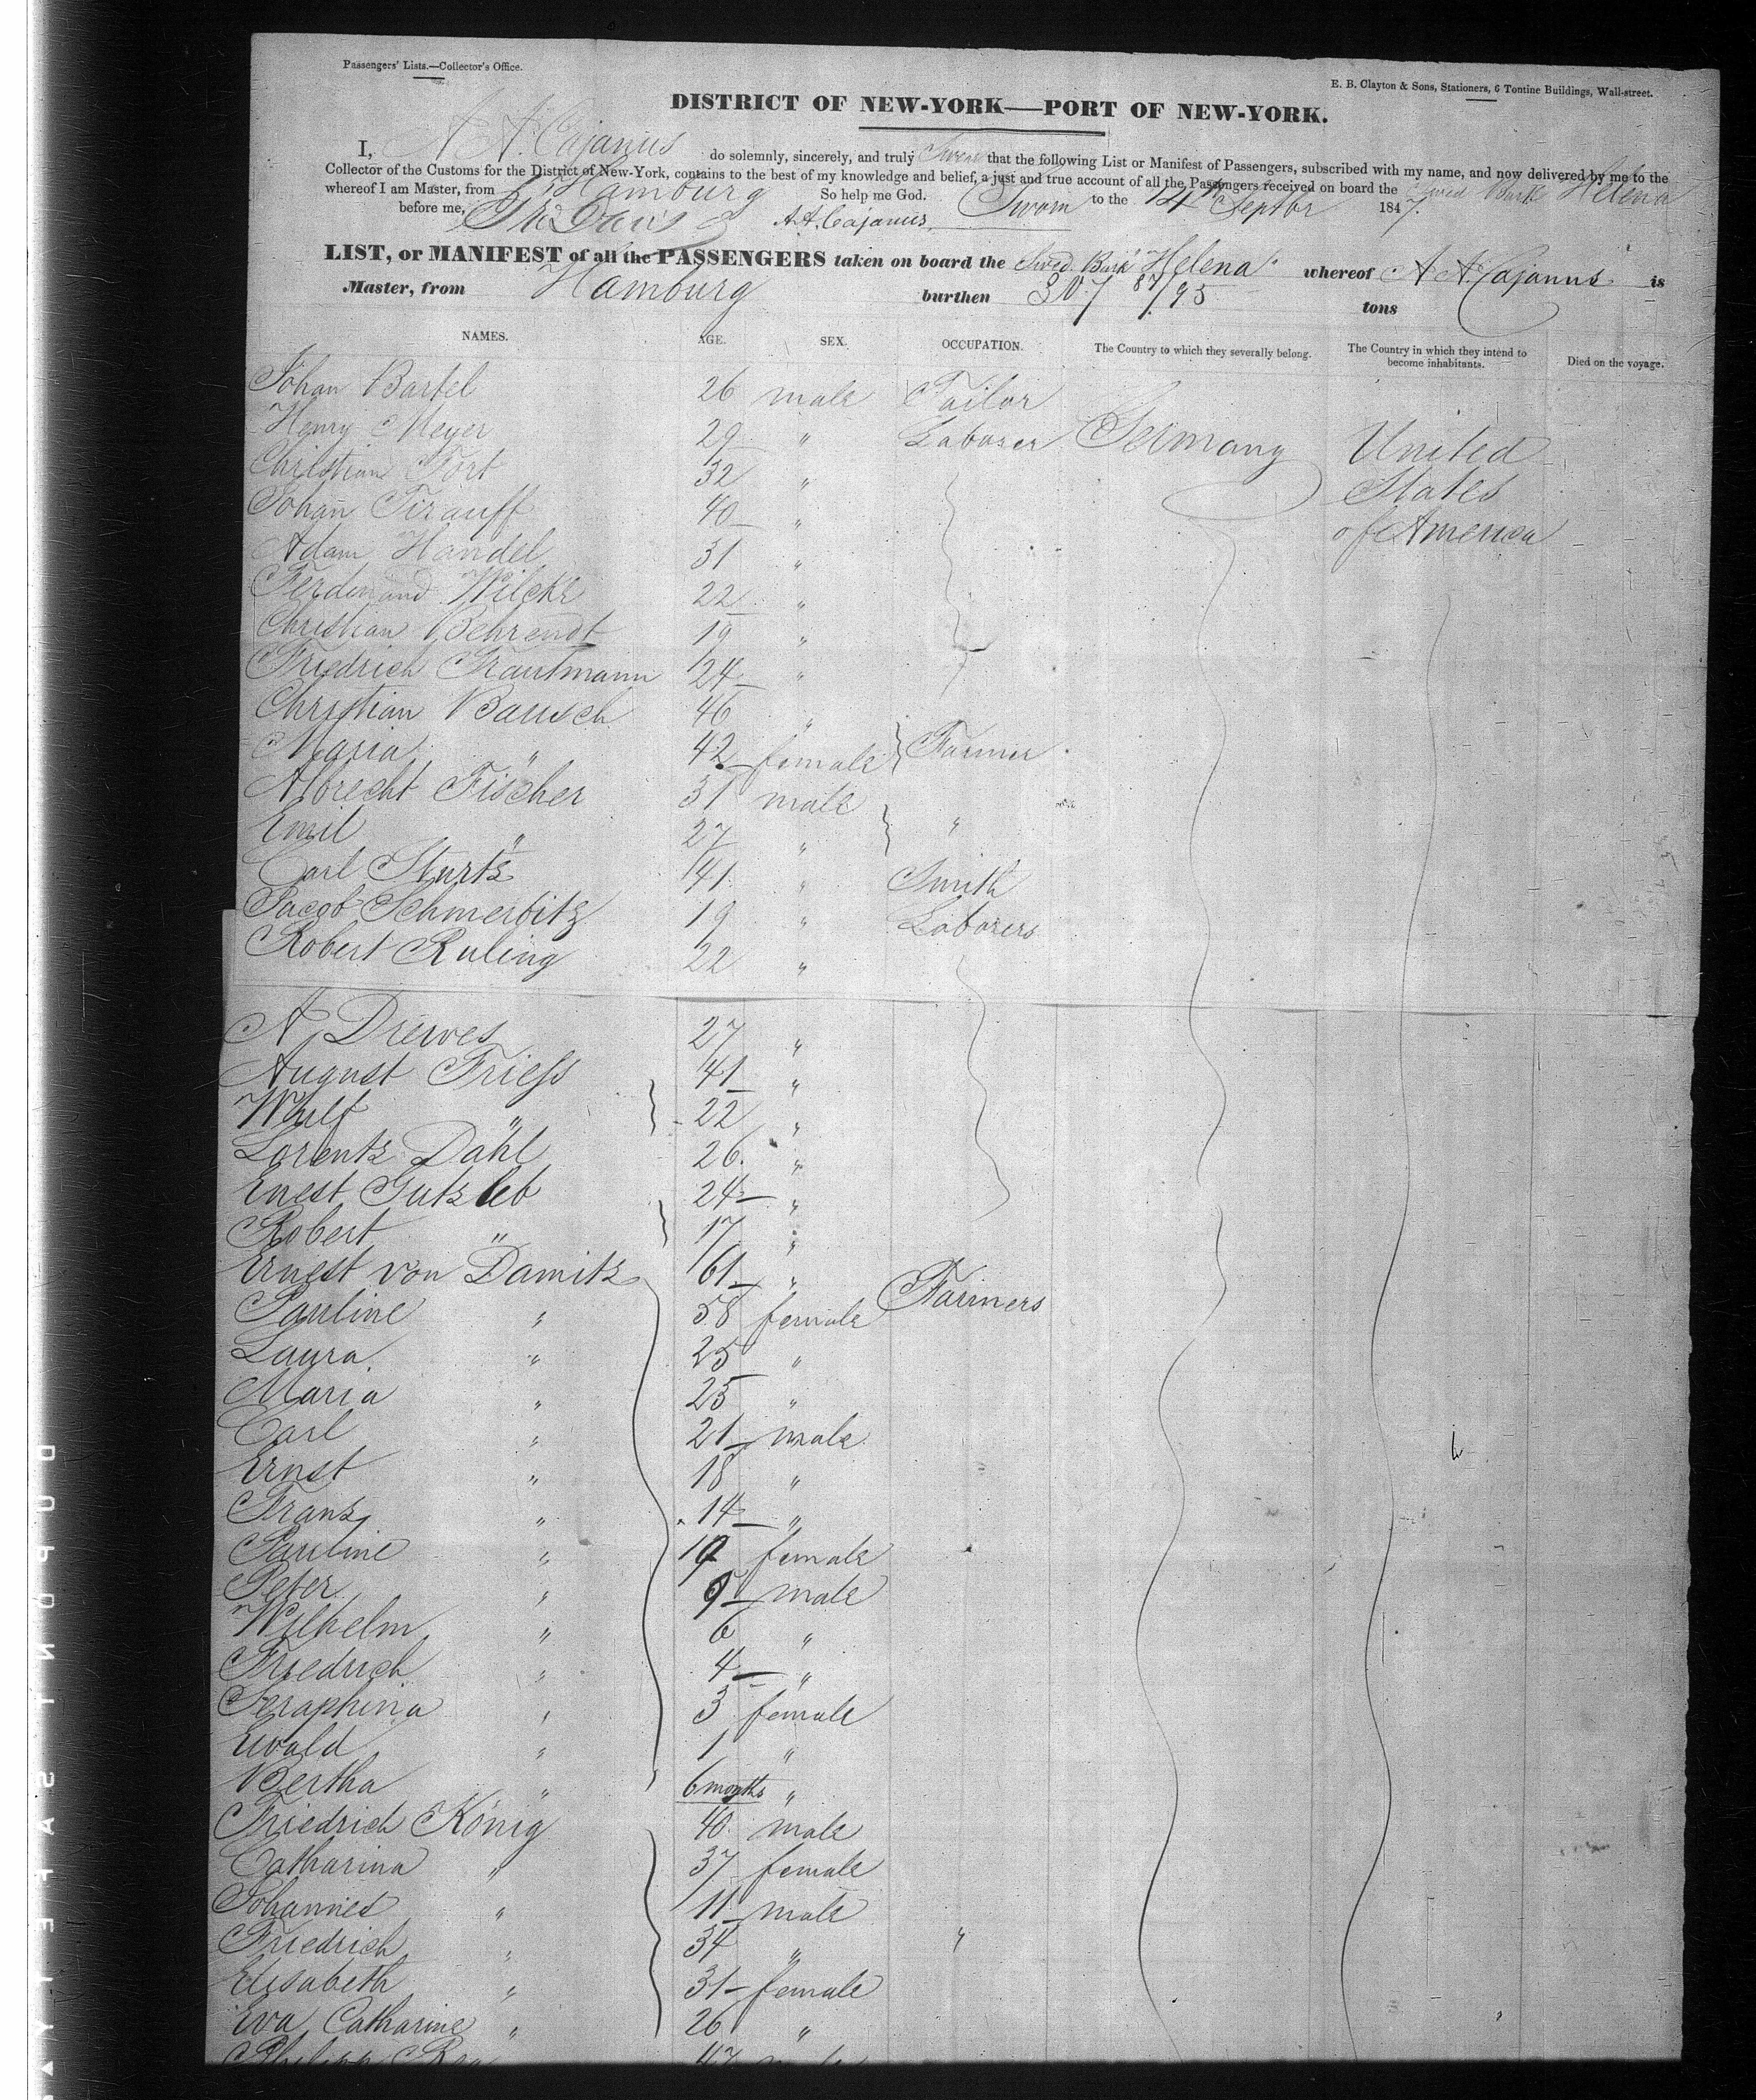 Passengers' Lists.—Collector's Office.
E. B. Clayton & Sons, Stationers, 6 Tontine Buildings, Wall-street.
DISTRICT OF NEW-YORK—PORT OF NEW-YORK.
I, A A. Cajanus do solemnly, sincerely, and truly Swear that the following List or Manifest of Passengers, subscribed with my name, and now delivered by me to the
Collector of the Customs for the District of New-York, contains to the best of my knowledge and belief, a just and true account of all the Passengers received on board the Swed Bark Helena
whereof I am Master, from Hamburg So help me God. Sworn to the 14th Septbr 1847.
before me, A. A. Cajanus.
LIST, or MANIFEST of all the PASSENGERS taken on board the Swed. Bark Helena whereof A A. Cajanus is
Master, from Hamburg burthen 307 87/95 tons
NAMES. AGE. SEX. OCCUPATION. The Country to which they severally belong. The Country in which they intend to become inhabitants. Died on the voyage.
Johan Bartel 26 male Tailor
Henry Meyer 29 " Laborer Germany United
Christian Fort 32 " States
Johan Tirauff 40 " of America
Adam Handel 31 "
Ferdinand Wilcke 22 "
Christian Behrendt 19 "
Friedrich Trautmann 24 "
Christian Bausch 46 "
Maria " 42 female Farmer
Albrecht Fischer 31 male
Emil " 27 " "
Carl Sturtz 41 " Smith
Jacob Schmerbitz 19 " Laborers
Robert Ruling 22 "
A. Drewes 27 "
August Friess 41 "
Wulf " 22 "
Lorentz Dahl 26. "
Enest Gutzleb 24 "
Robert " 17 "
Ernest von Damitz 61 " Farmers
Pauline " 58 female
Laura " 25 "
Maria " 25 "
Carl " 21 male
Ernst " 18 "
Franz " 14 "
Pauline " 19 female
Peter " 9 male
Wilhelm " 6 "
Friedrich " 4 "
Seraphina " 3 female
Ewald " 1 "
Bertha " 6 months "
Friedrich König 40 male
Catharina " 37 female
Johannes " 11 male
Friedrich " 34 " "
Elisabeth " 31 female
Eva Catharine " 26 "
Philipp
DUPONT SAFETY